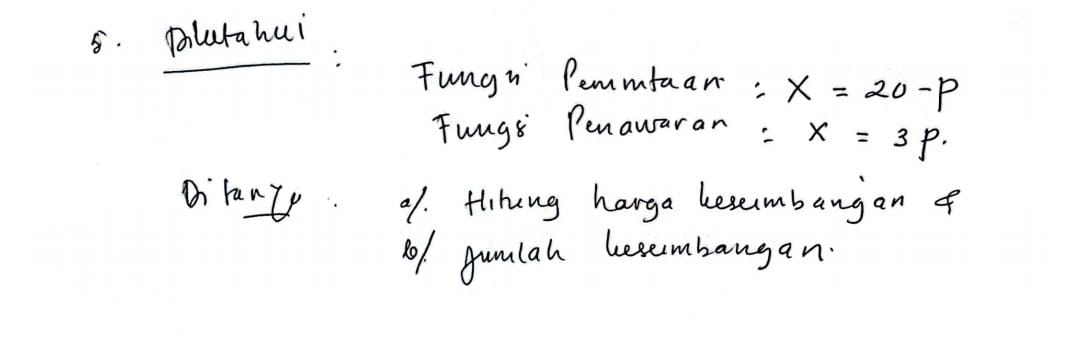 5. Diketahui :
Fungsi Permintaan : X = 20 - P
Fungsi Penawaran : X = 3 P.
Ditanya : a/. Hitung harga keseimbangan &
b/ Jumlah keseimbangan.